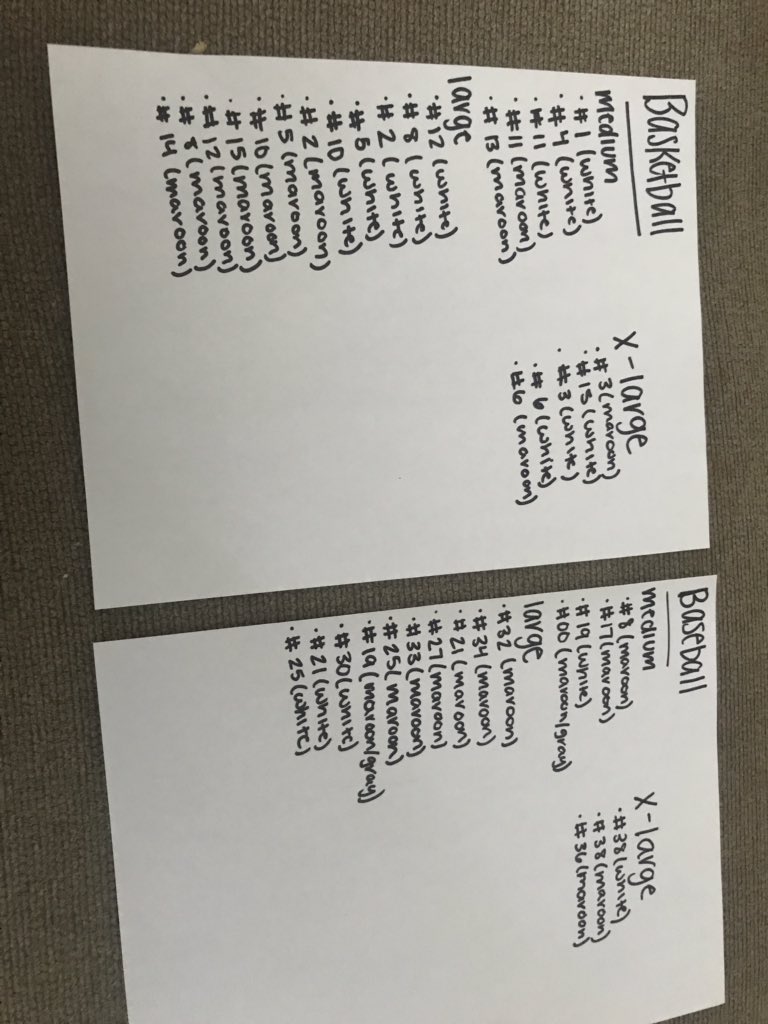 Basketball
medium
· # 1 (white)
· # 4 (white)
· # 11 (white)
· #11 (maroon)
· # 13 (maroon)
large
· #12 (white)
· # 8 (white)
· # 2 (white)
· # 5 (white)
· # 10 (white)
· # 2 (maroon)
· # 5 (maroon)
· # 10 (maroon)
· # 15 (maroon)
· # 12 (maroon)
· # 8 (maroon)
· # 14 (maroon)
X-large
· # 3 (maroon)
· # 15 (white)
· # 3 (white)
· # 6 (white)
· #6 (maroon)
Baseball
medium
· #8 (maroon)
· #17 (maroon)
· #19 (white)
· #00 (maroon/gray)
large
· #32 (maroon)
· #34 (maroon)
· #21 (maroon)
· #27 (maroon)
· #33 (maroon)
· #25 (maroon)
· #19 (maroon/gray)
· #30 (white)
· #21 (white)
· # 25 (white)
X-large
· #38 (white)
· #38 (maroon)
· #36 (maroon)